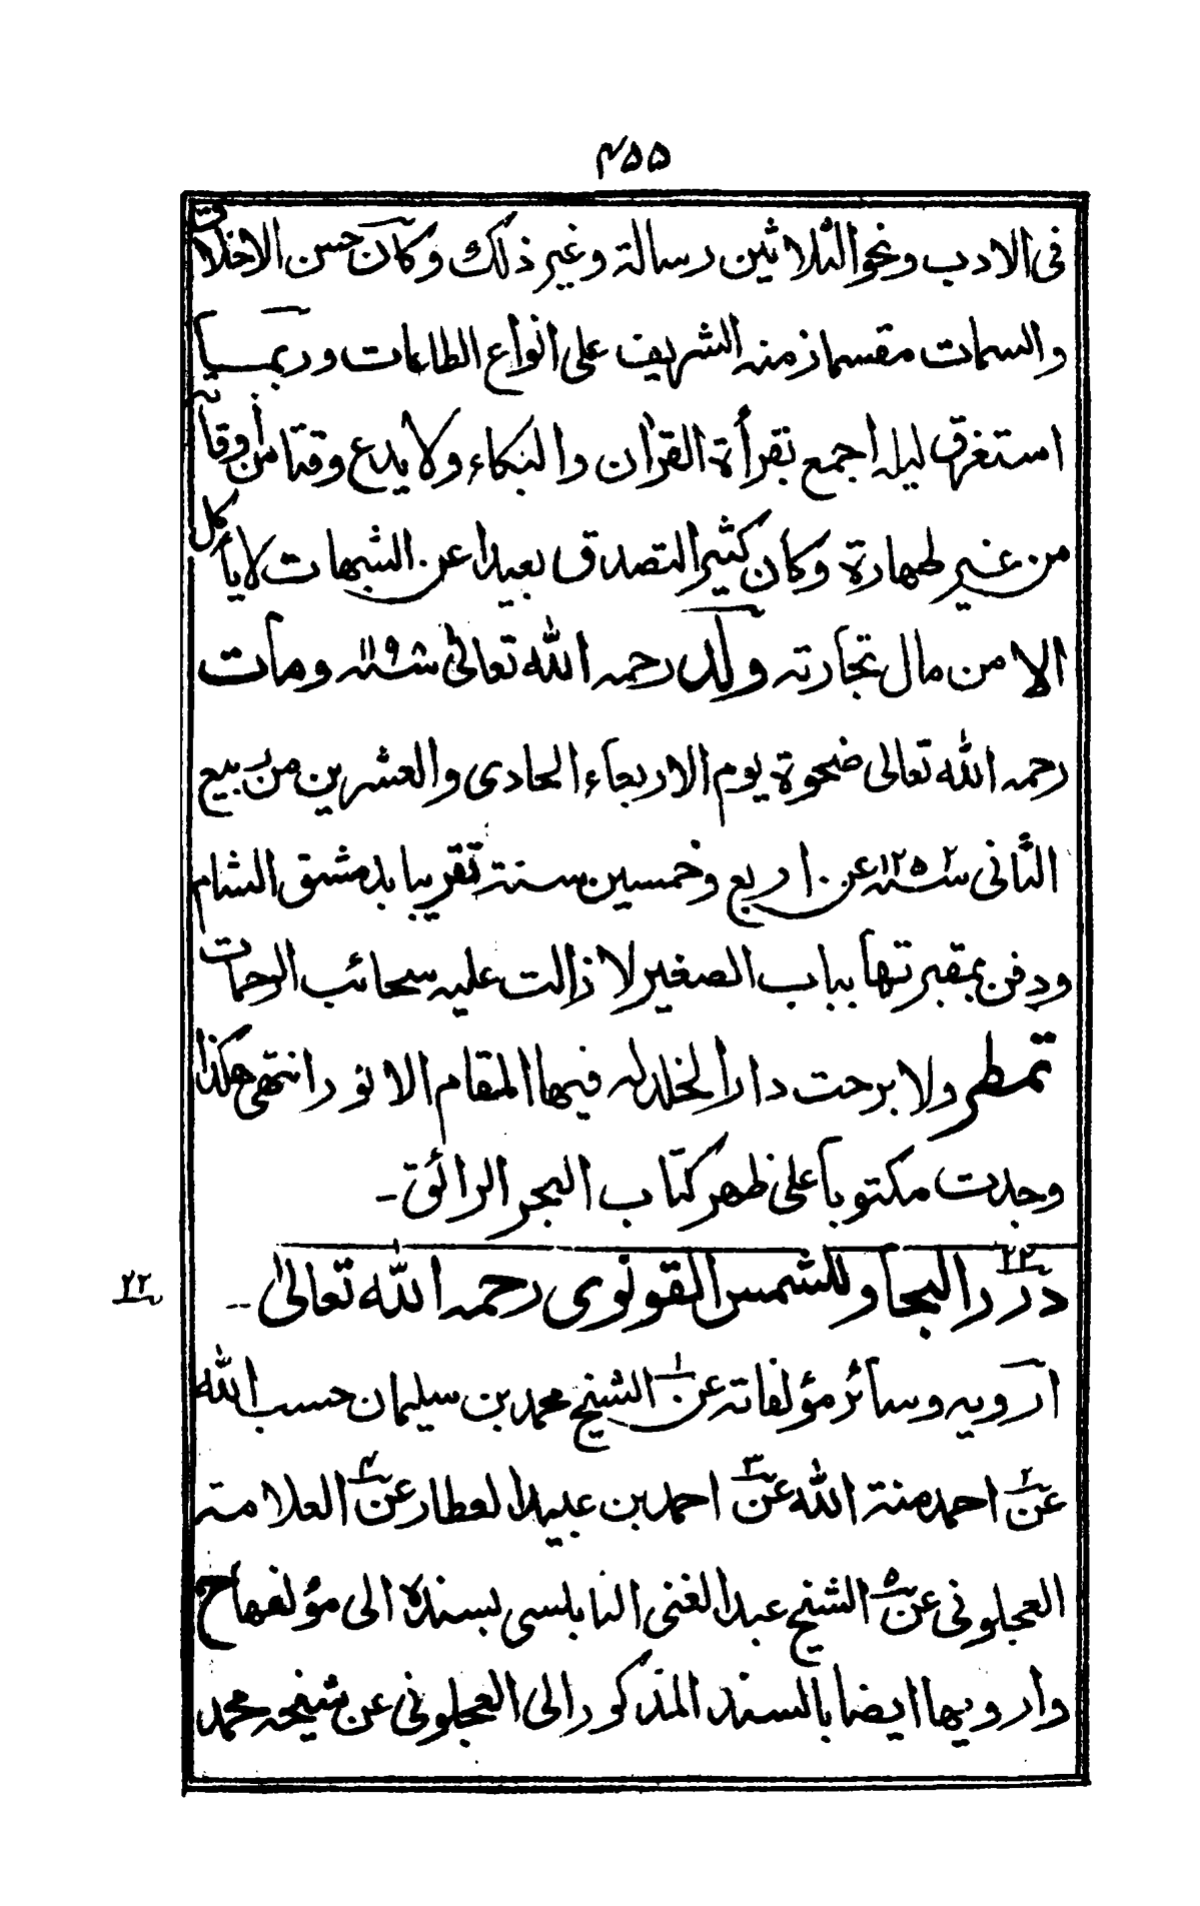 ۴۵۵
فى الادب ونحو الثلاثين رسالة وغير ذلك وكان حسن الاخلاق
والسمات مقسما زمنه الشريف على انواع الطاعات وربما
استغرق ليله اجمع بقرأة القران والبكاء ولا يدع وقتا من أوقاته
من غير طهارة وكان كثير التصدق بعيدا عن الشبهات لا يأكل
الا من مال تجارته ولد رحمه الله تعالى ۱۱۹۸سنة ومات
رحمه الله تعالى ضحوة يوم الاربعاء الحادى والعشرين من ربيع
الثانى ۱۲۵۲سنة عن اربع وخمسين سنة تقريبا بدمشق الشام
ودفن بمقبرتها بباب الصغير لا زالت عليه سحائب الرحمات
تمطر ولا برحت دار الخلد له فيها المقام الانور انتهى هكذا
وجدت مكتوبا على ظهر كتاب البحر الرائق -
۲۲ درر البحار للشمس القونوى رحمه الله تعالى -- ۲۲
ارويه وسائر مؤلفاته عن۱ الشيخ محمد بن سليمان حسب الله
عن۲ احمد منة الله عن۳ احمد بن عبيد العطار عن۴ العلامة
العجلونى عن۵ الشيخ عبد الغنى النابلسى بسنده الى مؤلفها ح
وارويها ايضا بالسند المذكور الى العجلونى عن شيخه محمد